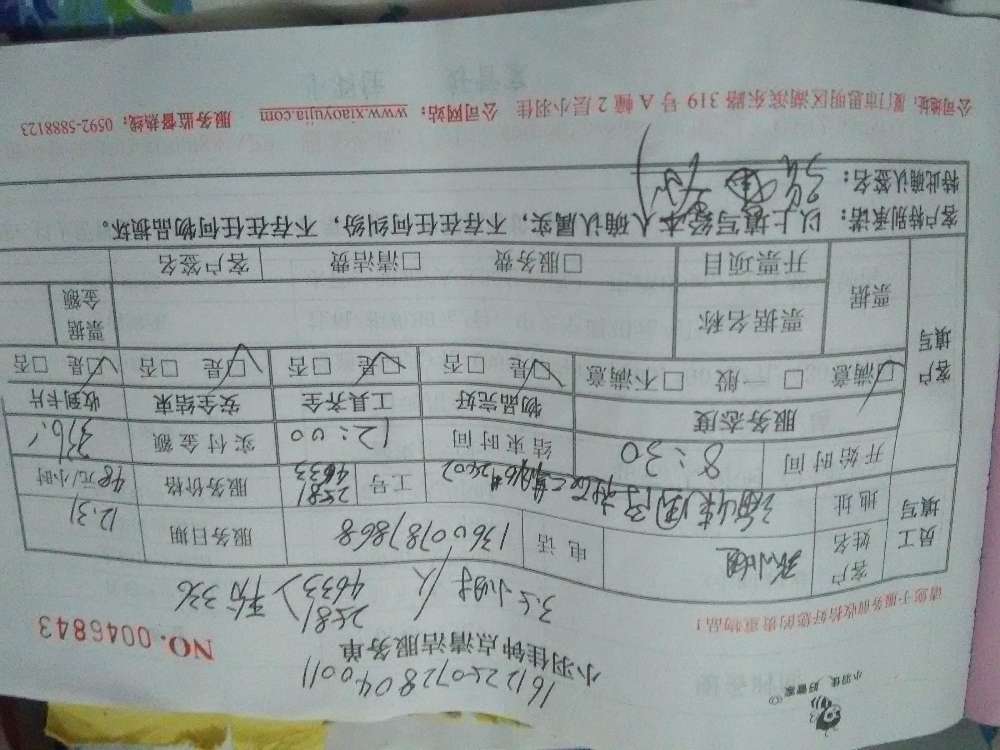 小羽佳 好管家
1612250728040011
小羽佳钟点清洁服务单
NO. 0046843
请您于服务前收拾好您的贵重物品！
3.5小时/人
2581
4633
员工填写
客户姓名
电话
13600787868
服务日期
12.31
地址
2602
工号
2581
4633
服务价格
48元/小时
开始时间
8:30
结束时间
12:00
实付金额
336.
客户填写
服务态度
物品完好
工具齐全
安全结束
收到卡片
☑满意 □一般 □不满意
☑是 □否
☑是 □否
☑是 □否
☑是 □否
票据
票据名称
票据金额
开票项目
□服务费 □清洁费
客户签名
客户特别承诺：以上填写经本人确认属实，不存在任何纠纷，不存在任何物品损坏。
特此确认签名：
公司地址：厦门市思明区湖滨东路319号A幢2层小羽佳 公司网站：www.xiaoyujia.com 服务监督热线：0592-5888123